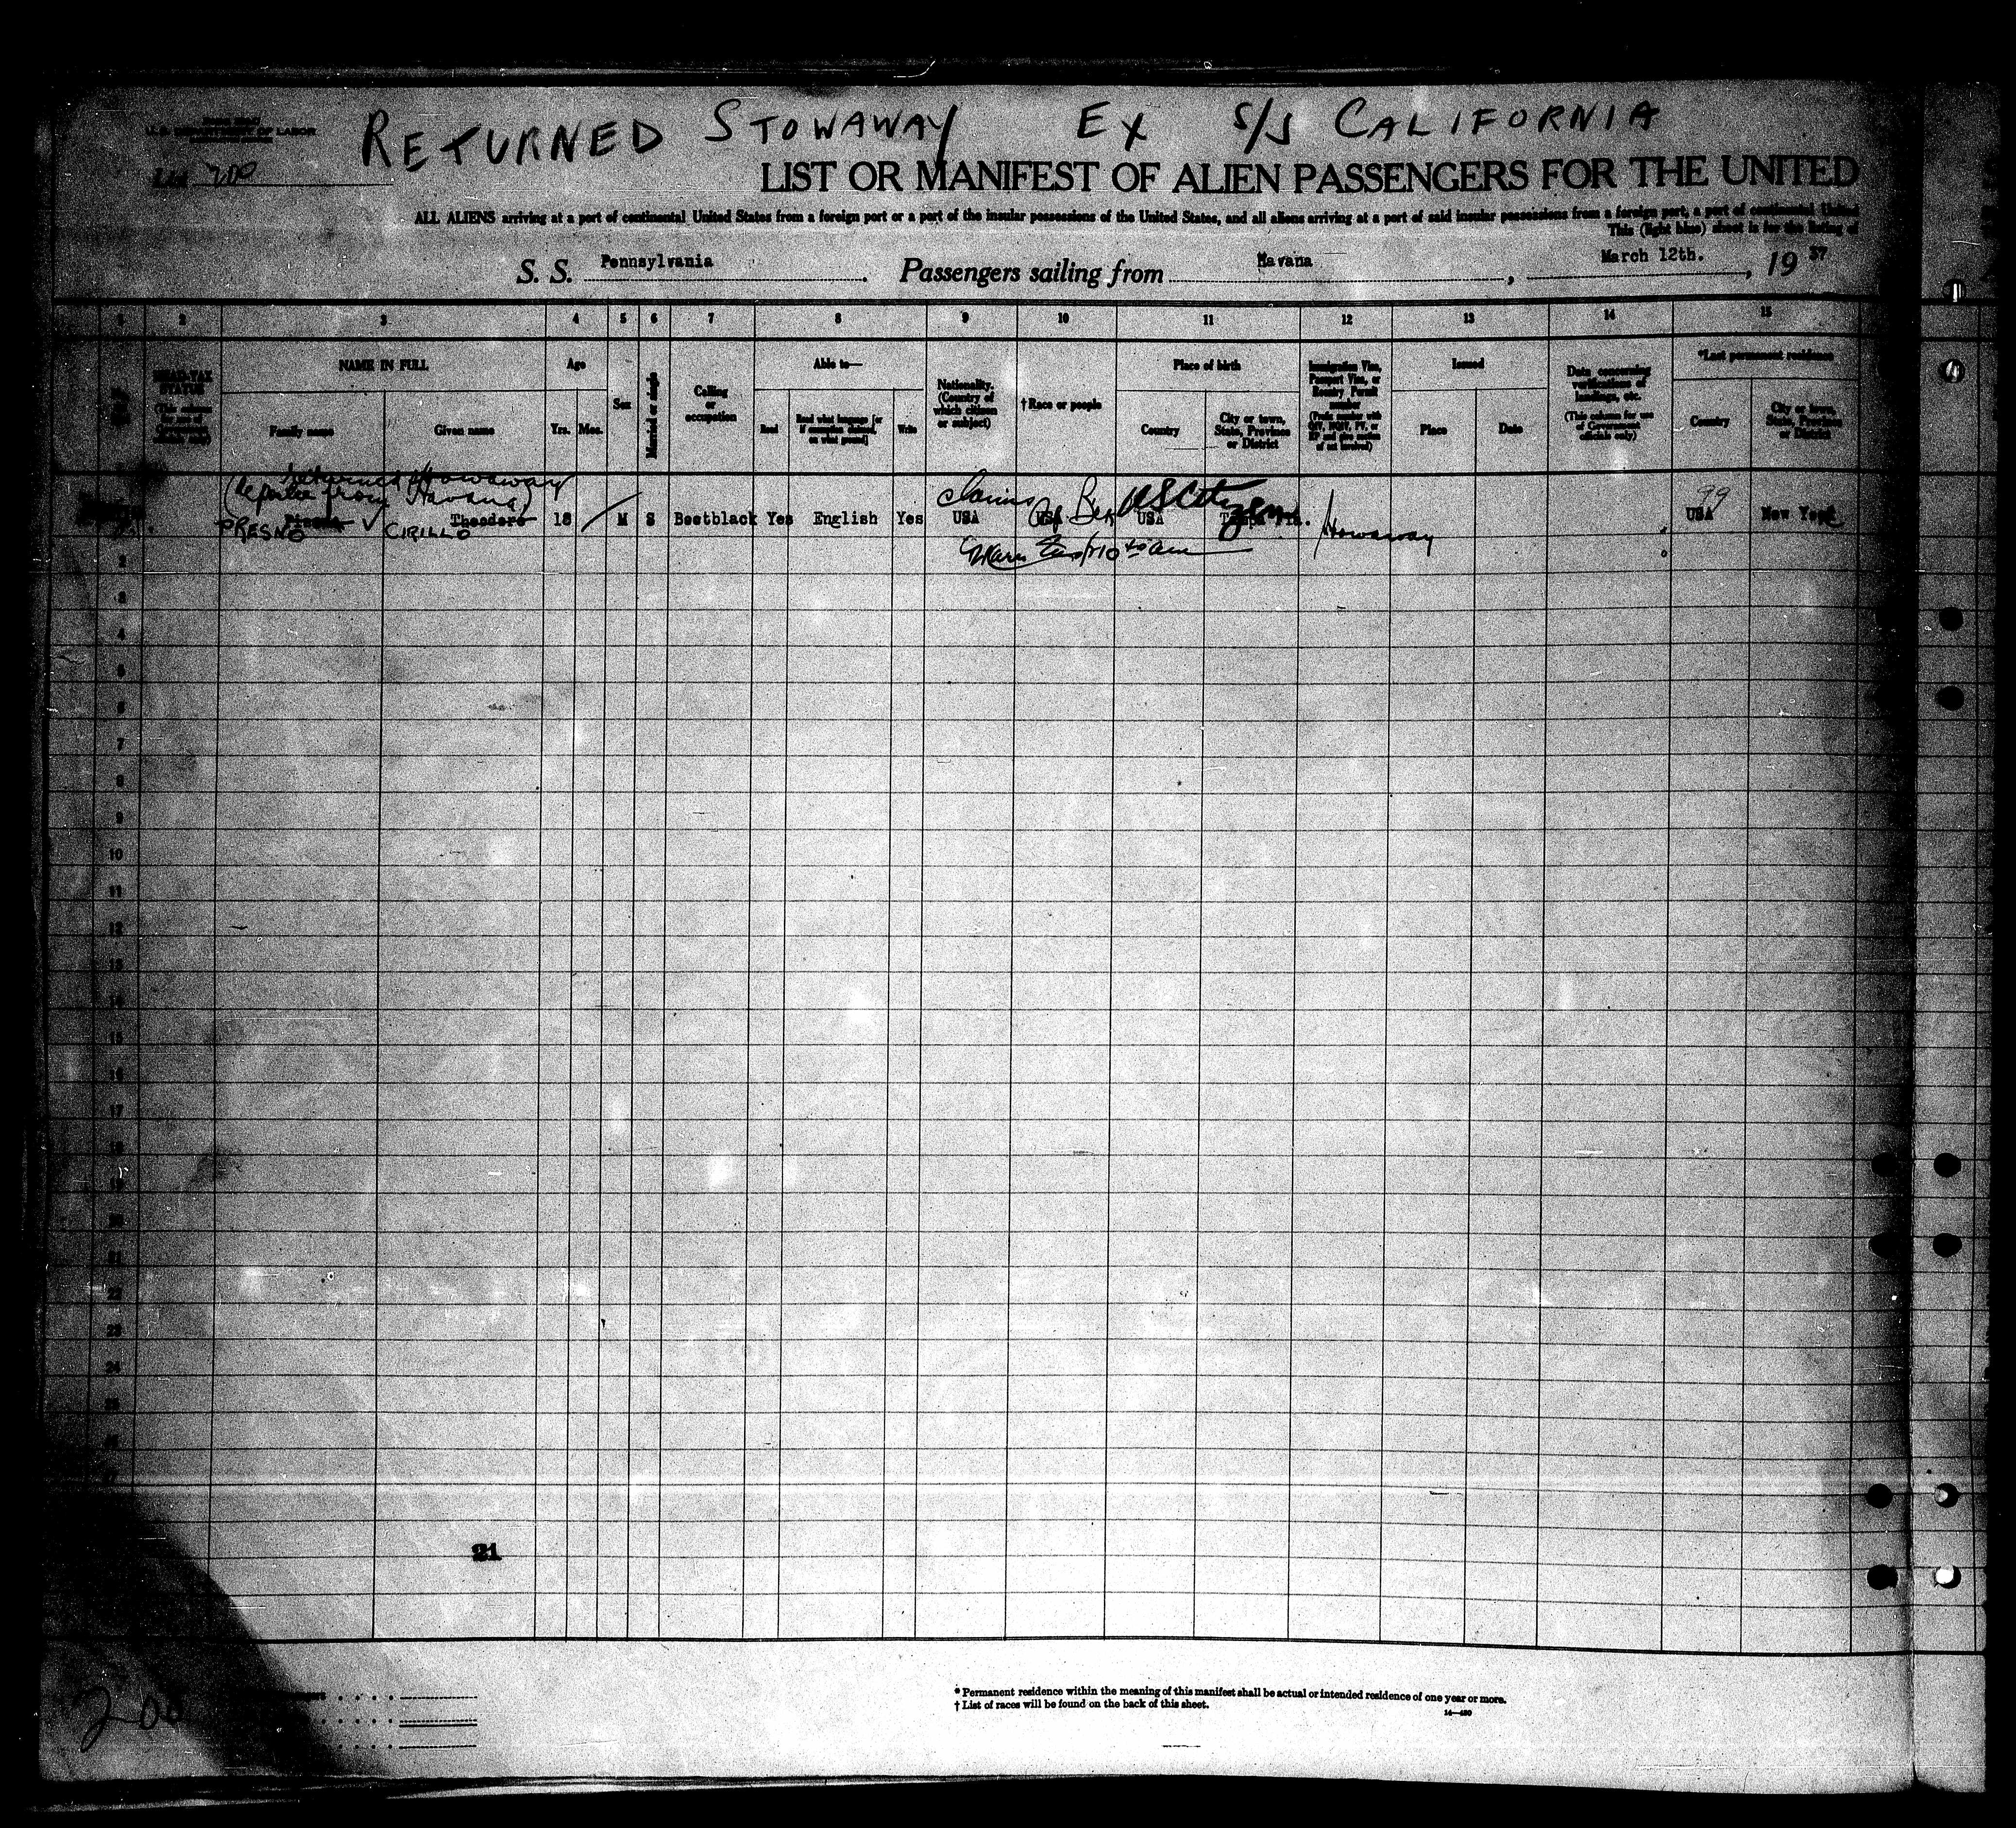 RETURNED STOWAWAY EX S/S CALIFORNIA
U.S. DEPARTMENT OF LABOR
List 200
LIST OR MANIFEST OF ALIEN PASSENGERS FOR THE UNITED
ALL ALIENS arriving at a port of continental United States from a foreign port or a port of the insular possessions of the United States, and all aliens arriving at a port of said insular possessions from a foreign port, a port of continental United
This (light blue) sheet is for the listing of
S. S. Pennsylvania Passengers sailing from Havana, March 12th., 19 37
1 2 3 4 5 6 7 8 9 10 11 12 13 14 15
HEAD-TAX STATUS
NAME IN FULL
Family name Given name
Age
Yrs. Mos.
Sex
Married or single
Calling or occupation
Able to—
Read Read what language [or if exemption claimed, on what ground] Write
Nationality. (Country of which citizen or subject)
† Race or people
Place of birth
Country City or town, State, Province or District
Immigration Visa, Passport Visa, or Reentry Permit number
Issued
Place Date
Data concerning verifications of landings, etc.
(This column for use of Government officials only)
*Last permanent residence
Country City or town, State, Province or District
returned stowaway
(deportee from Havana)
claims US Citizen
99
Theodore 18 M S Bootblack Yes English Yes USA USA USA USA New York
PRESNO ✓ CIRILLO
Stowaway
2
3
4
5
6
7
8
9
10
11
12
13
14
15
16
17
18
19
20
21
22
23
24
25
26
21
200
* Permanent residence within the meaning of this manifest shall be actual or intended residence of one year or more.
† List of races will be found on the back of this sheet.
14—480